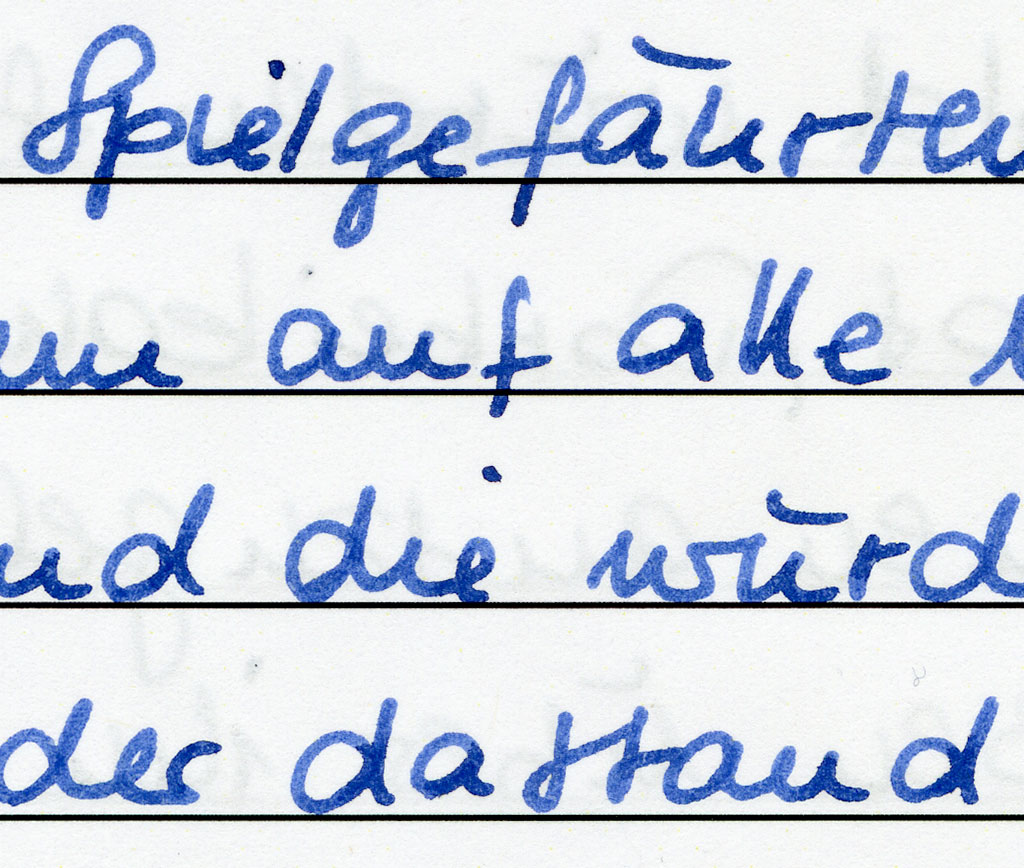 Spielgefährten
auf alle
nd die würd
der dastand